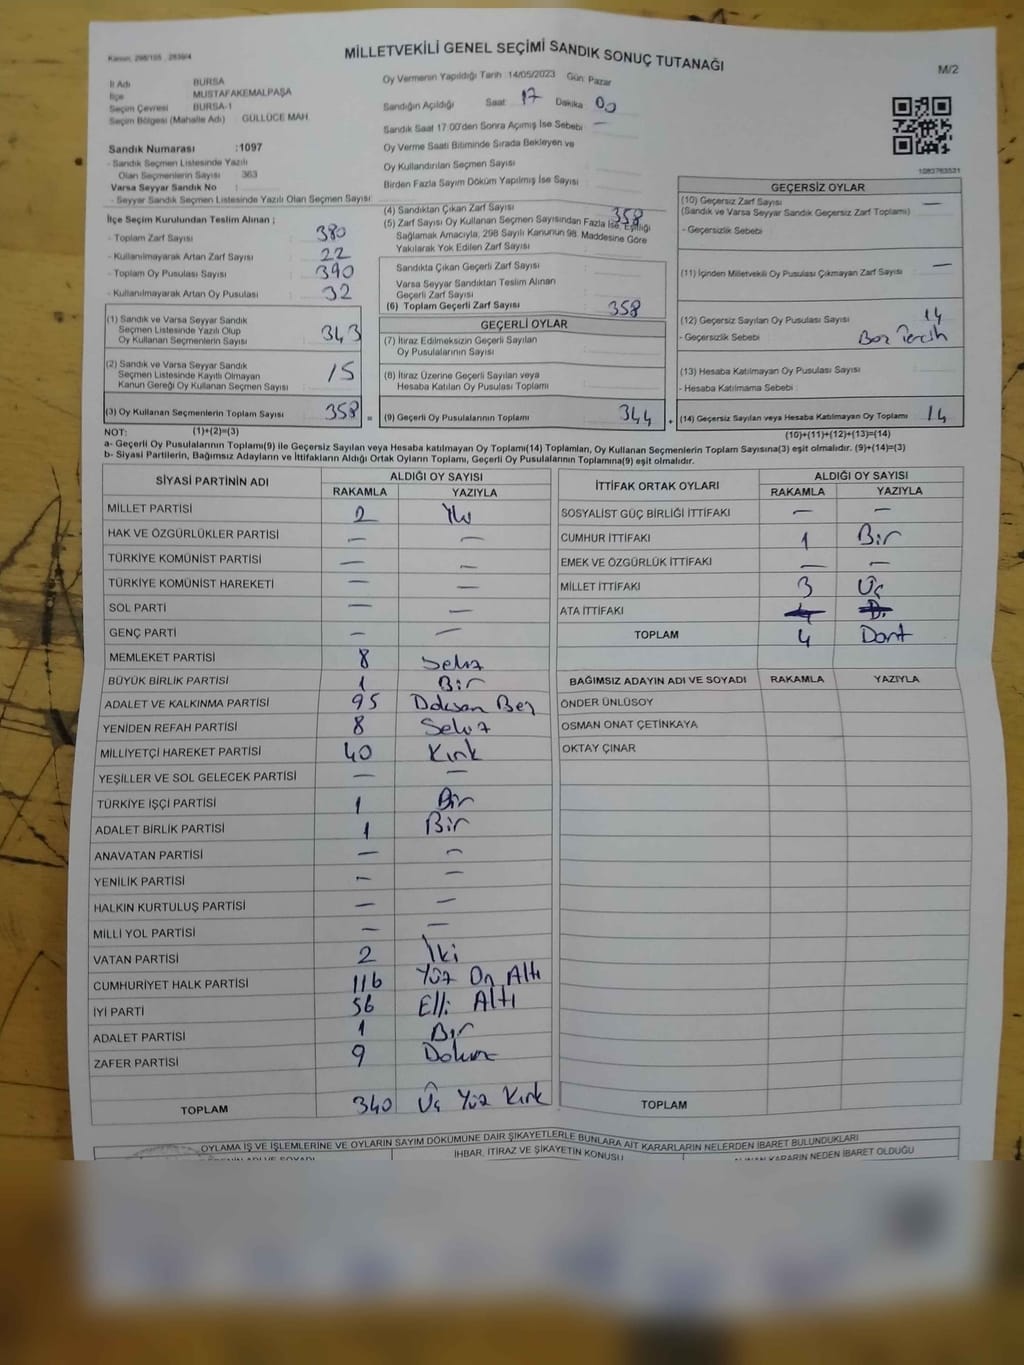 Kanun: 298/105 , 2839/4
MİLLETVEKİLİ GENEL SEÇİMİ SANDIK SONUÇ TUTANAĞI
M/2
İl Adı BURSA
İlçe MUSTAFAKEMALPAŞA
Seçim Çevresi BURSA-1
Seçim Bölgesi (Mahalle Adı) GÜLLÜCE MAH.
Oy Vermenin Yapıldığı Tarih 14/05/2023 Gün: Pazar
Sandığın Açıldığı Saat 17 Dakika 00
Sandık Saat 17:00'den Sonra Açımış İse Sebebi —
Oy Verme Saati Bitiminde Sırada Bekleyen ve
Oy Kullandırılan Seçmen Sayısı
Birden Fazla Sayım Döküm Yapılmış İse Sayısı
Sandık Numarası :1097
- Sandık Seçmen Listesinde Yazılı
Olan Seçmenlerin Sayısı 363
Varsa Seyyar Sandık No :
- Seyyar Sandık Seçmen Listesinde Yazılı Olan Seçmen Sayısı:
1083763531
İlçe Seçim Kurulundan Teslim Alınan ;
- Toplam Zarf Sayısı : 380
- Kullanılmayarak Artan Zarf Sayısı : 22
- Toplam Oy Pusulası Sayısı : 390
- Kullanılmayarak Artan Oy Pusulası : 32
(1) Sandık ve Varsa Seyyar Sandık
Seçmen Listesinde Yazılı Olup
Oy Kullanan Seçmenlerin Sayısı : 343
(2) Sandık ve Varsa Seyyar Sandık
Seçmen Listesinde Kayıtlı Olmayan
Kanun Gereği Oy Kullanan Seçmen Sayısı : 15
(3) Oy Kullanan Seçmenlerin Toplam Sayısı : 358 =
(4) Sandıktan Çıkan Zarf Sayısı 358
(5) Zarf Sayısı Oy Kullanan Seçmen Sayısından Fazla İse, Eşitliği
Sağlamak Amacıyla, 298 Sayılı Kanunun 98. Maddesine Göre
Yakılarak Yok Edilen Zarf Sayısı
Sandıkta Çıkan Geçerli Zarf Sayısı :
Varsa Seyyar Sandıktan Teslim Alınan
Geçerli Zarf Sayısı :
(6) Toplam Geçerli Zarf Sayısı : 358
GEÇERLİ OYLAR
(7) İtiraz Edilmeksizin Geçerli Sayılan
Oy Pusulalarının Sayısı :
(8) İtiraz Üzerine Geçerli Sayılan veya
Hesaba Katılan Oy Pusulası Toplamı :
(9) Geçerli Oy Pusulalarının Toplamı : 344 +
GEÇERSİZ OYLAR
(10) Geçersiz Zarf Sayısı —
(Sandık ve Varsa Seyyar Sandık Geçersiz Zarf Toplamı)
- Geçersizlik Sebebi :
(11) İçinden Milletvekili Oy Pusulası Çıkmayan Zarf Sayısı : —
(12) Geçersiz Sayılan Oy Pusulası Sayısı : 14
- Geçersizlik Sebebi : Boş Tercih
(13) Hesaba Katılmayan Oy Pusulası Sayısı :
- Hesaba Katılmama Sebebi :
(14) Geçersiz Sayılan veya Hesaba Katılmayan Oy Toplamı : 14
NOT: (1)+(2)=(3)
(10)+(11)+(12)+(13)=(14)
a- Geçerli Oy Pusulalarının Toplamı(9) ile Geçersiz Sayılan veya Hesaba katılmayan Oy Toplamı(14) Toplamları, Oy Kullanan Seçmenlerin Toplam Sayısına(3) eşit olmalıdır. (9)+(14)=(3)
b- Siyasi Partilerin, Bağımsız Adayların ve İttifakların Aldığı Ortak Oyların Toplamı, Geçerli Oy Pusulalarının Toplamına(9) eşit olmalıdır.
SİYASİ PARTİNİN ADI ALDIĞI OY SAYISI
RAKAMLA YAZIYLA
MİLLET PARTİSİ 2 İki
HAK VE ÖZGÜRLÜKLER PARTİSİ — —
TÜRKİYE KOMÜNİST PARTİSİ — —
TÜRKİYE KOMÜNİST HAREKETİ — —
SOL PARTİ — —
GENÇ PARTİ — —
MEMLEKET PARTİSİ 8 Sekiz
BÜYÜK BİRLİK PARTİSİ 1 Bir
ADALET VE KALKINMA PARTİSİ 95 Doksan Beş
YENİDEN REFAH PARTİSİ 8 Sekiz
MİLLİYETÇİ HAREKET PARTİSİ 40 Kırk
YEŞİLLER VE SOL GELECEK PARTİSİ — —
TÜRKİYE İŞÇİ PARTİSİ 1 Bir
ADALET BİRLİK PARTİSİ 1 Bir
ANAVATAN PARTİSİ — —
YENİLİK PARTİSİ — —
HALKIN KURTULUŞ PARTİSİ — —
MİLLİ YOL PARTİSİ — —
VATAN PARTİSİ 2 İki
CUMHURİYET HALK PARTİSİ 116 Yüz On Altı
İYİ PARTİ 56 Elli Altı
ADALET PARTİSİ 1 Bir
ZAFER PARTİSİ 9 Dokuz
TOPLAM 340 Üç Yüz Kırk
İTTİFAK ORTAK OYLARI ALDIĞI OY SAYISI
RAKAMLA YAZIYLA
SOSYALİST GÜÇ BİRLİĞİ İTTİFAKI — —
CUMHUR İTTİFAKI 1 Bir
EMEK VE ÖZGÜRLÜK İTTİFAKI — —
MİLLET İTTİFAKI 3 Üç
ATA İTTİFAKI
TOPLAM 4 Dört
BAĞIMSIZ ADAYIN ADI VE SOYADI RAKAMLA YAZIYLA
ÖNDER ÜNLÜSOY
OSMAN ONAT ÇETİNKAYA
OKTAY ÇINAR
TOPLAM
OYLAMA İŞ VE İŞLEMLERİNE VE OYLARIN SAYIM DÖKÜMÜNE DAİR ŞİKAYETLERLE BUNLARA AİT KARARLARIN NELERDEN İBARET BULUNDUKLARI
İHBAR, İTİRAZ VE ŞİKAYETİN KONUSU
ALINAN KARARIN NEDEN İBARET OLDUĞU